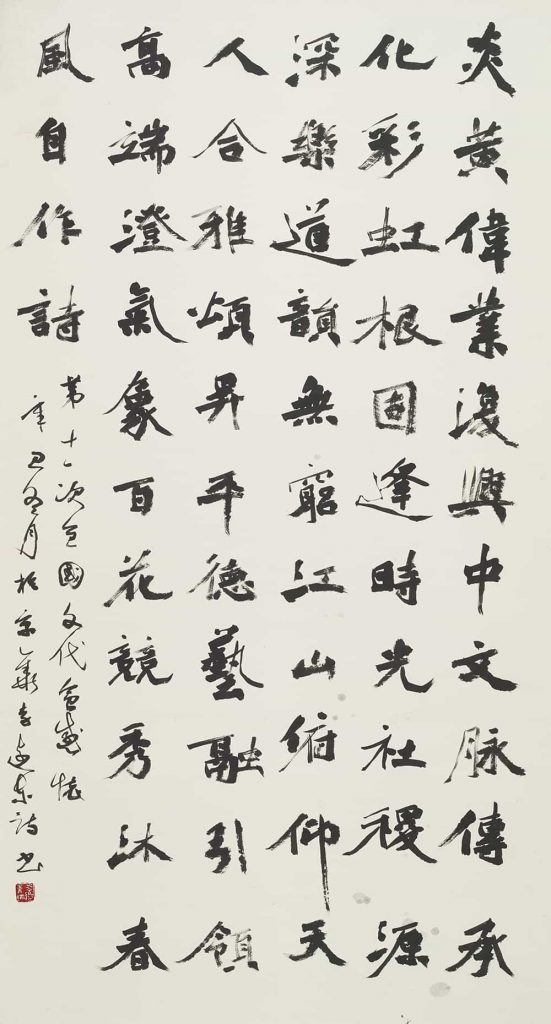 炎黃偉業復興中文脉傳承
化彩虹根固逢時光社稷源
深樂道韻無窮江山俯仰天
人合雅頌昇平德藝融引領
高端澄氣象百花競秀沐春
風自作詩
第十一次全國文代會感懷
辛丑冬月於京華李東詩书